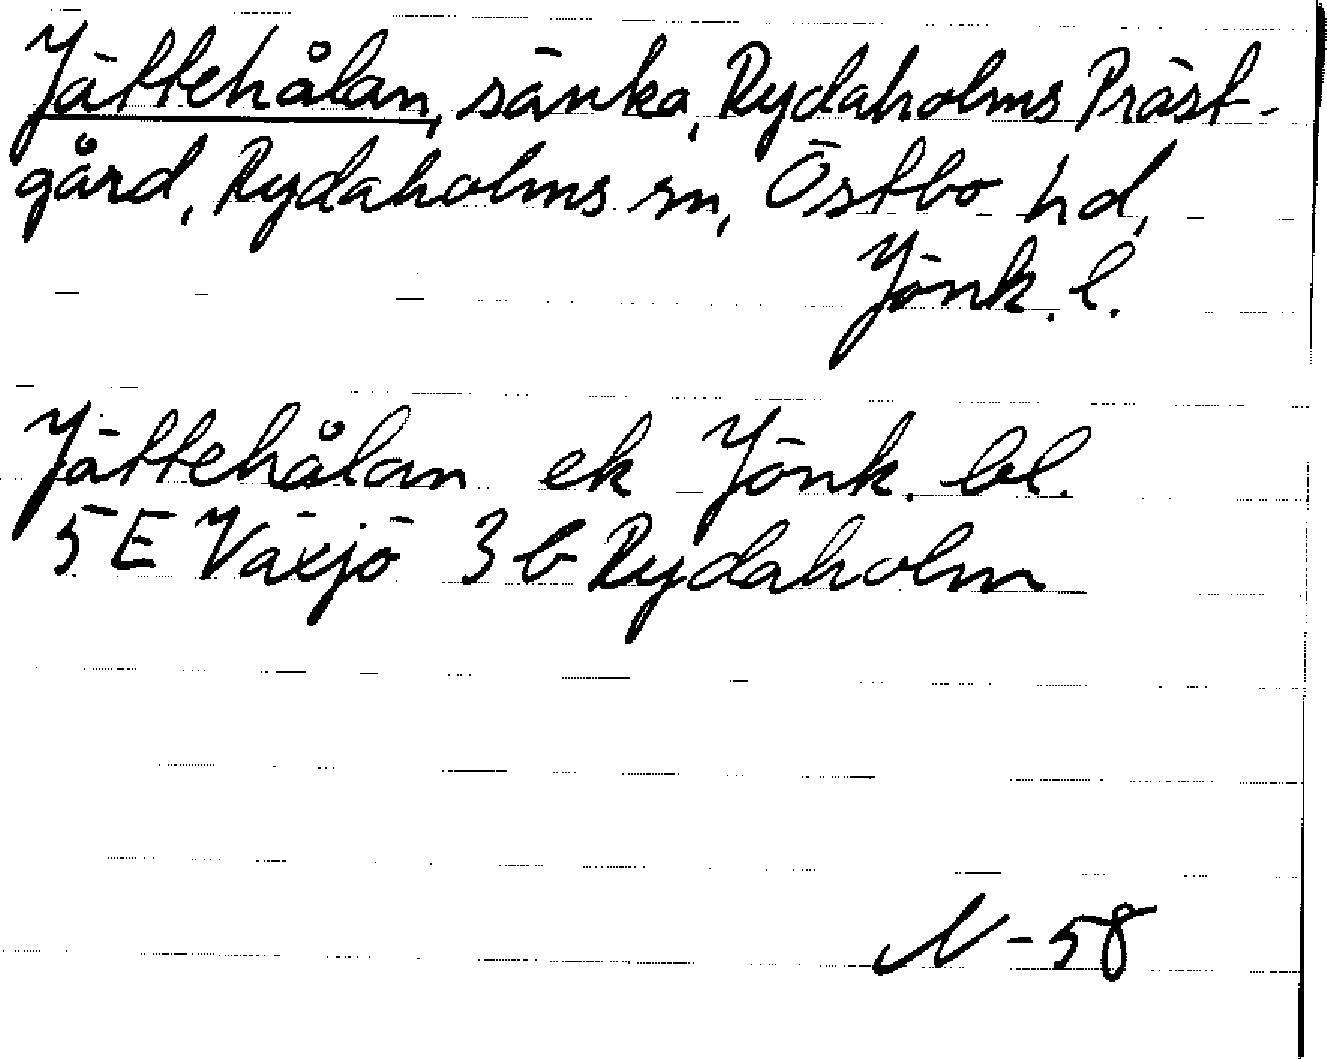 Jättehålan, sänka, Rydaholms Präst-
gård, Rydaholms sn, Östbo hd,
Jönk. l.
Jättehålan ek Jönk. bl.
5 E Växjö 3 b Rydaholm
N-58